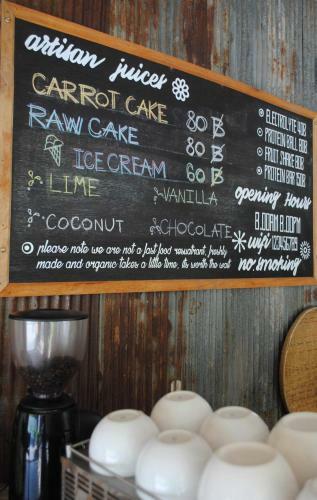 artisan juices
CARROT CAKE 80 ฿
RAW CAKE 80 ฿
ICE CREAM 60 ฿
LIME VANILLA
COCONUT CHOCOLATE
please note we are not a fast food restaurant, freshly
made and organic takes a little time, its worth the wait
ELECTROLYTE 40฿
PROTEIN BALL 60฿
FRUIT SHAKE 80฿
PROTEIN BAR 50฿
opening Hours
8.00AM 8.00PM
wifi 0123456789
no smoking